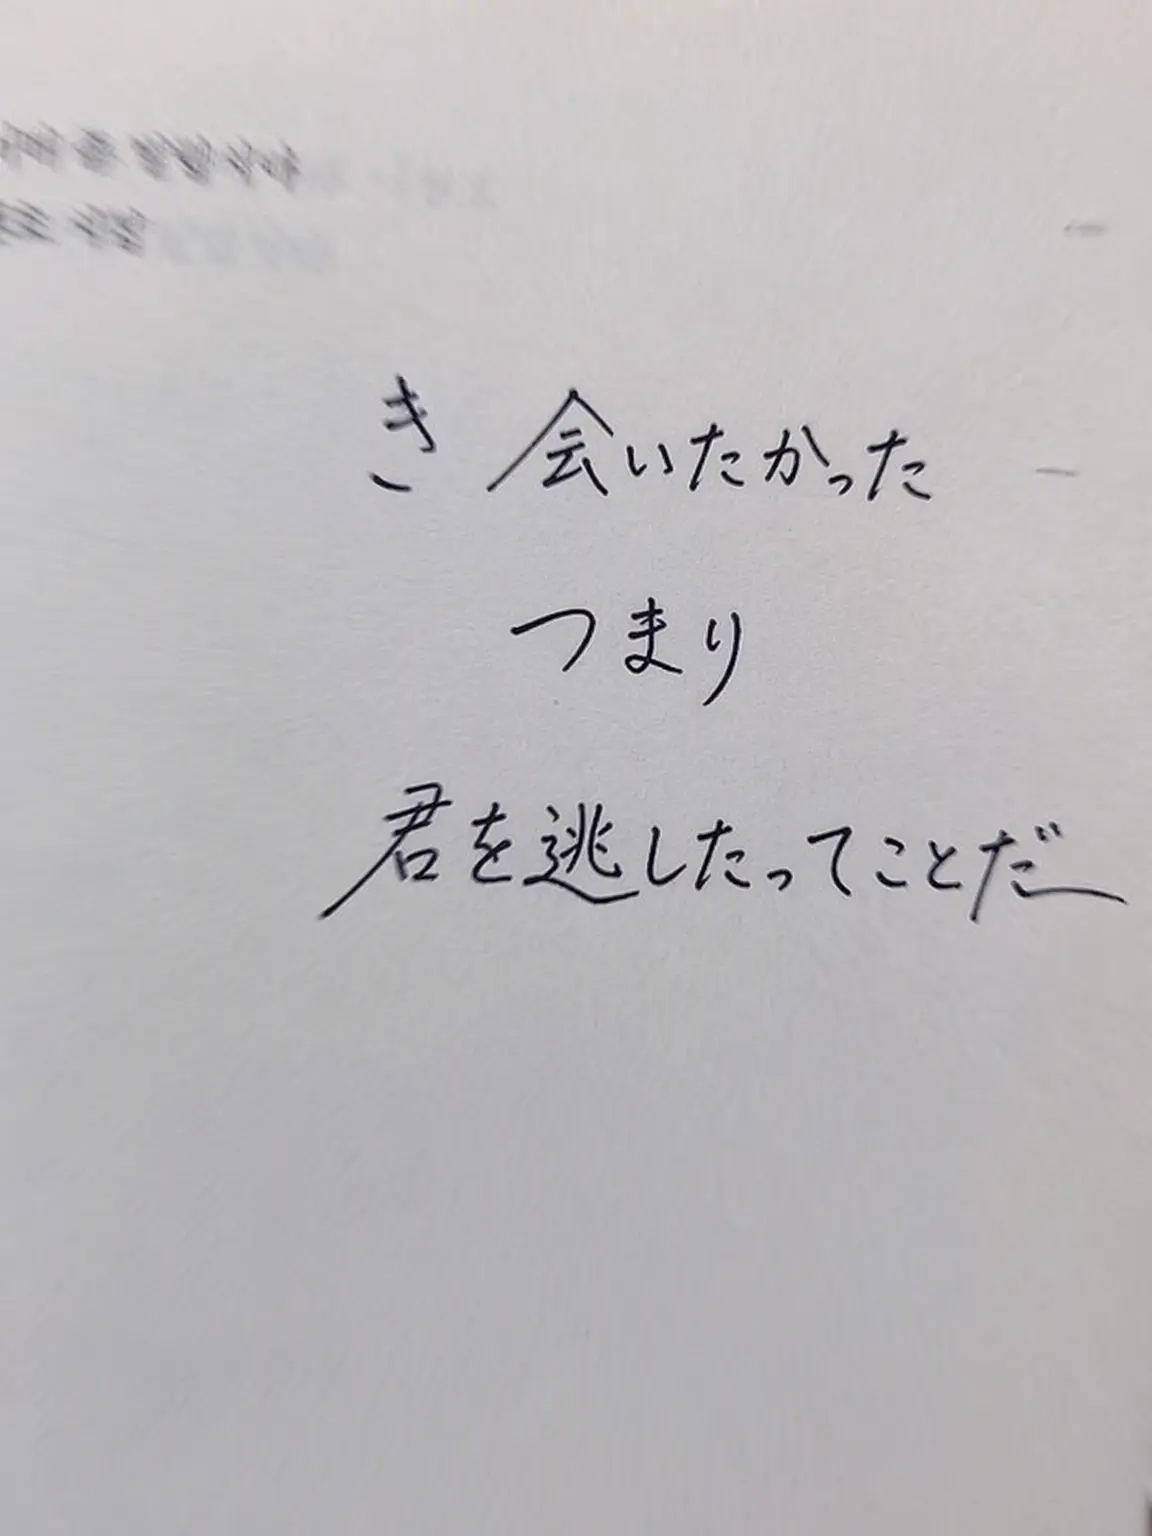 き 会いたかった
つまり
君を逃したってことだ